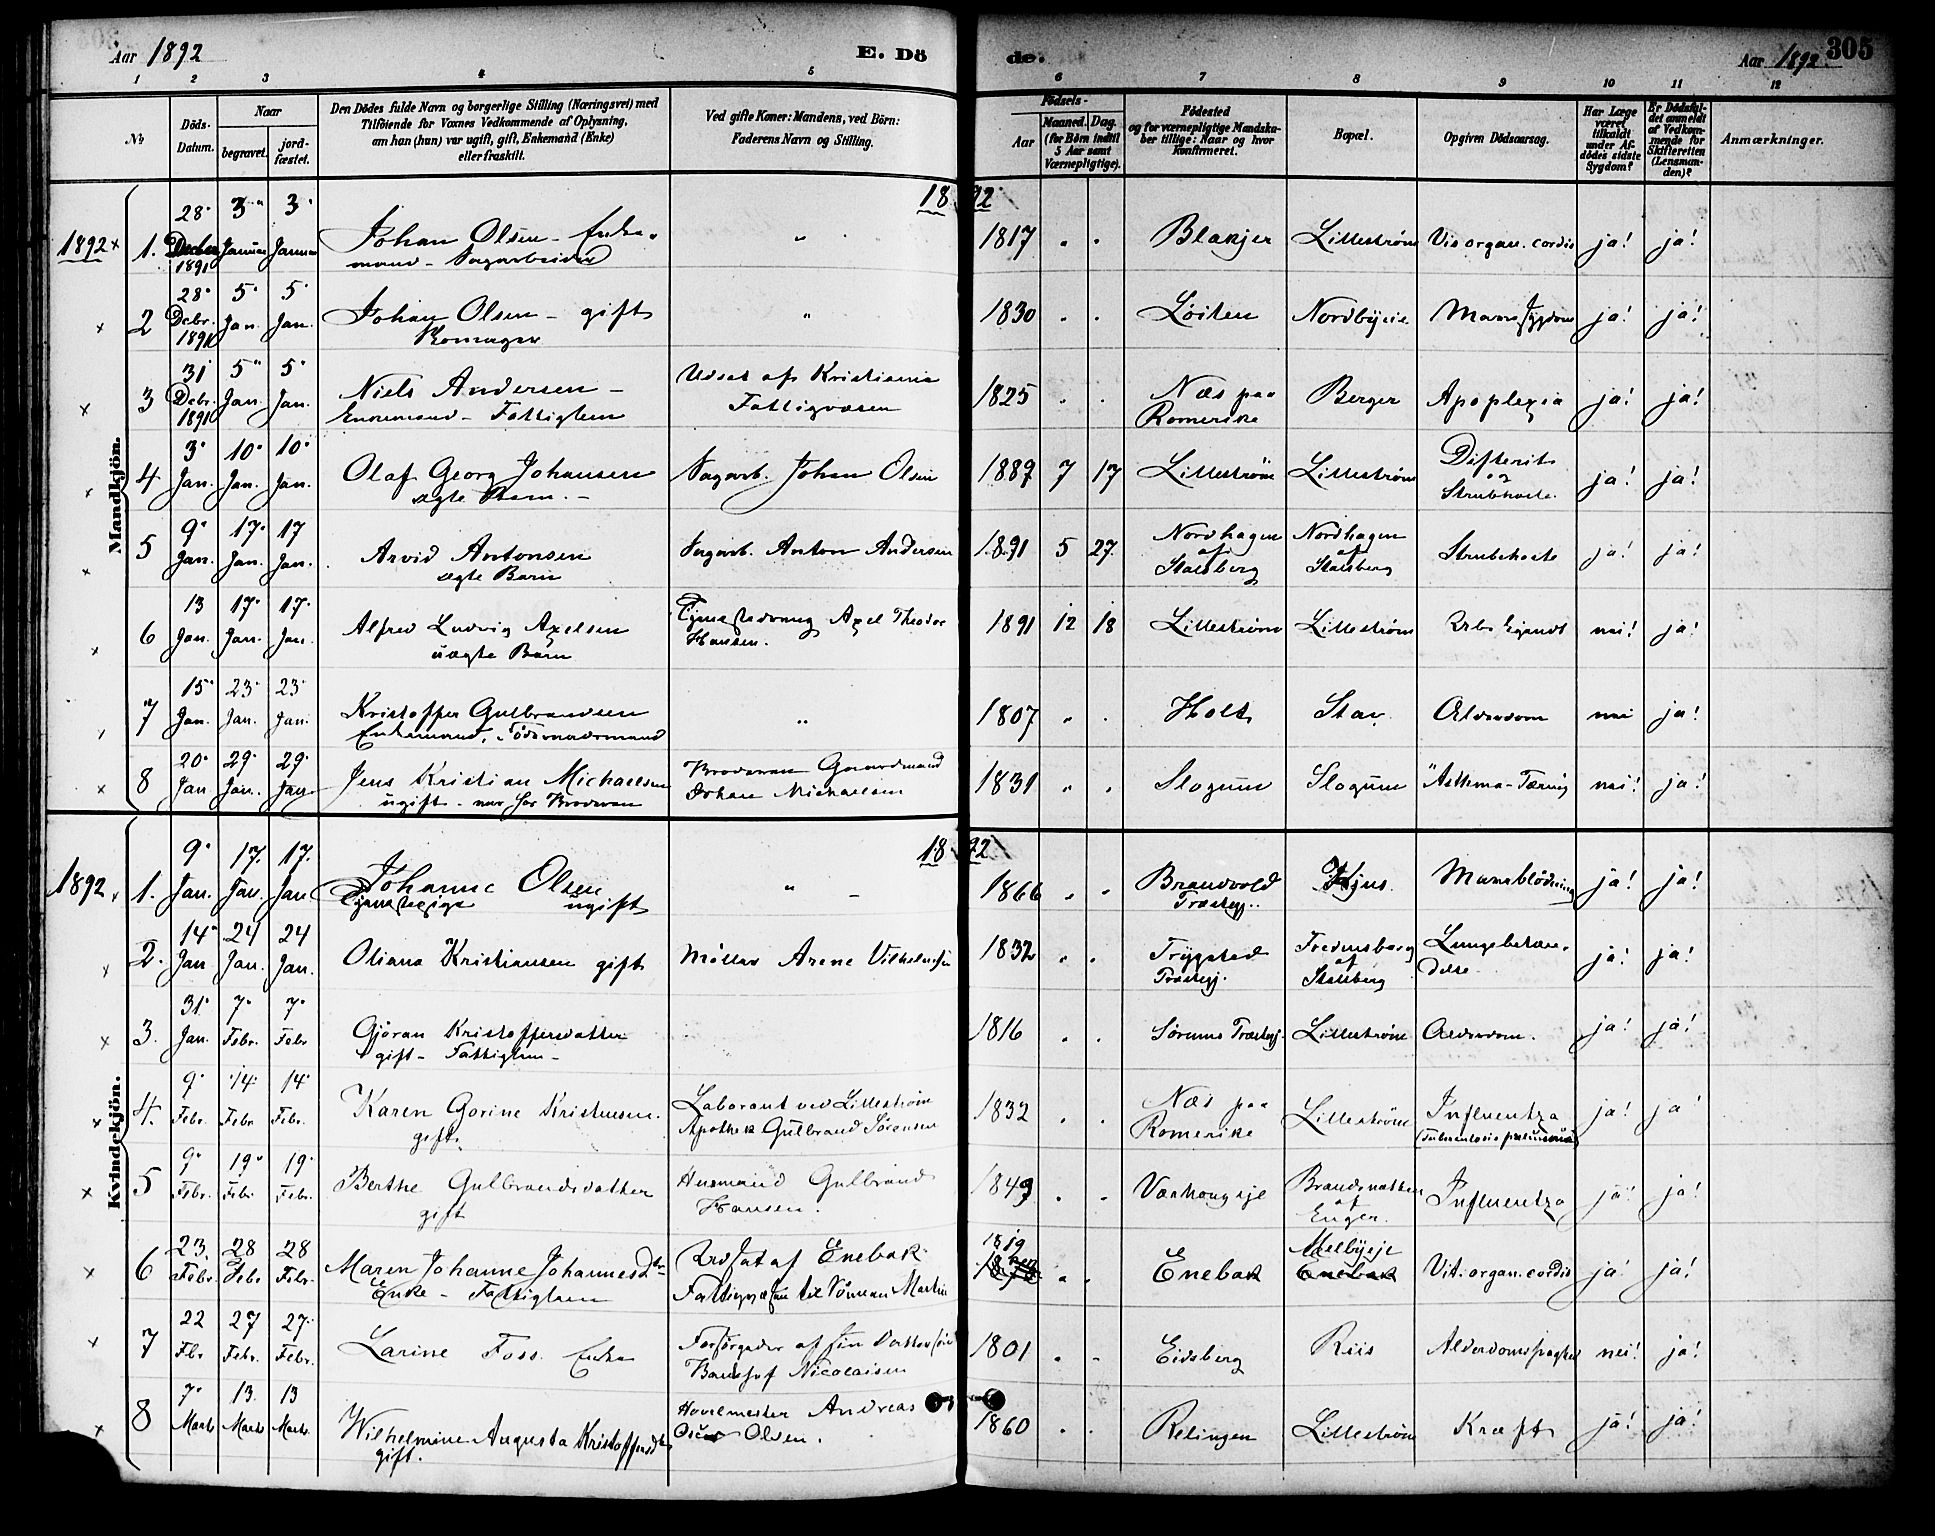 Aar 1892 E. Dö de. Aar 1892 305
1 2 3 4 5 6 7 8 9 10 11 12
No
Döds-Datum.
Naar
begravet.
jordfæstet.
Den Dödes fulde Navn og borgerlige Stilling (Næringsvei) med
Tilföiende for Voxnes Vedkommende af Oplysning,
om han (hun) var ugift, gift, Enkemand (Enke)
eller fraskilt.
Ved gifte Koner: Mandens, ved Börn:
Faderens Navn og Stilling.
Födsels-
Aar
Maaned. Dag.
(for Börn indtil
5 Aar samt
Værnepligtige).
Födested
og for værnepligtige Mandskaber tillige: Naar og hvor
Konfirmeret.
Bopæl.
Opgiven Dödsaarsag.
Har Læge
været
tilkaldt
under Afdödes sidste
Sygdom?
Er Dödsfaldet anmeldt
af Vedkommende for
Skifteretten
(Lensmanden)?
Anmærkninger.
Mandkjön.
1892
1892 1. 28. Decber 1891 3. Januar 3. Januar Johan Olsen - Enkemand - Sagarbeider " 1817 " " Blakjer Lillestrøm Vit. organ. cordis ja! ja!
2 28. Decbr. 1891 5. Jan. 5. Jan. Johan Olsen - gift Skomager " 1830 " " Løiten Nordbyeie Mavesygdom ja! ja!
3 31 Decbr. 1891 5. Jan. 5. Jan. Niels Andersen - Enkemand - Fattiglem Udsat af Kristiania Fattigvæsen 1825 " " Næs paa Romerike Berger Apoplexia ja! ja!
4 3. Jan. 10. Jan. 10. Jan. Olaf Georg Johansen ægte Barn. - Sagarb. Johan Olsen 1889 7 17 Lillestrøm Lillestrøm Difterit og Strubehoste. ja! ja!
5 9. Jan. 17. Jan. 17 Jan. Arvid Antonsen ægte Barn Sagarb. Anton Andersen 1891 5 27 Nordhagen af Stalsberg Nordhagen af Stalsberg Strubehoste ja! ja!
6 13 Jan. 17. Jan. 17. Jan. Alfred Ludvig Axelsen uægte Barn Axel Theodor Hansen. 1891 12 18 Lillestrøm Lillestrøm nei! ja!
7 15. Jan. 23. Jan. 23. Jan. Kristoffer Gulbrandsen Enkemand, Föderaadsmand " 1807 " " Holt Stav Alderdom nei ja!
8 20. Jan 29. Jan. 29. Jan. Jens Kristian Michaelsen ugift - var hos Broderen Broderen Gaardmand Johan Michaelsen 1831 " " Slogum Slogum Asthma-Tæring nei! ja!
Kvindekjön.
1892
1892 1. 9. Jan. 17. Jan. 17. Jan Johanne Olsen Tjenestepige ugift " 1866 " " Brandvold Præstegj. Kjus. Maveblödning ja! ja!
2. 14. Jan 24 Jan. 24 Jan. Oliana Kristiansen gift Möller Arene Vilhelmsen 1832 " " Trygstad Præstegj. Fredensborg af Stalsberg Lungebetændelse ja! ja!
3. 31. Jan. 7. Febr. 7. Febr Gjöran Kristoffersdatter gift - Fattiglem - 1816 " " Sörums Præstegj. Lillestrøm Alderdom. ja! ja!
4. 9. Febr. 14. Febr 14. Febr. Karen Gorine Kristiansen. gift. Laborant ved Lillestrøm Apothek Gulbrand Sörensen 1832 " " Næs paa Romerike Lillestrøm Influentza (Tuberculosis pulmonum) ja! ja!
5 9. Febr. 19. Febr 19. Febr. Berthe Gulbrandsdatter gift Husmand Gulbrand Hansen. 1849 " " Vardhougseje Brandsnatten af Enger. Influentza ja! ja!
6 23. Febr 28 Febr 28 Febr. Maren Johanne Johannesdtr Enke - Fattiglem Udsat af Enebak Fattigvæsen til Sönnen Martin 1819 " " Enebak Melbyeje Enebak Vit. organ. cordis ja! ja!
7 22 Fbr. 27 Febr. 27. Febr. Larine Foss. Enke Forsörgedes af sin Nicolaisen 1801 " " Eidsberg Riis nei! ja!
8 7. Marts 13. Marts 13 Marts. Wilhelmine Augusta Kristoffersdtr gift. Hövelmester Andreas Oscar Olsen. 1860 " " Relingen Lillestrøm Kræft ja! ja!